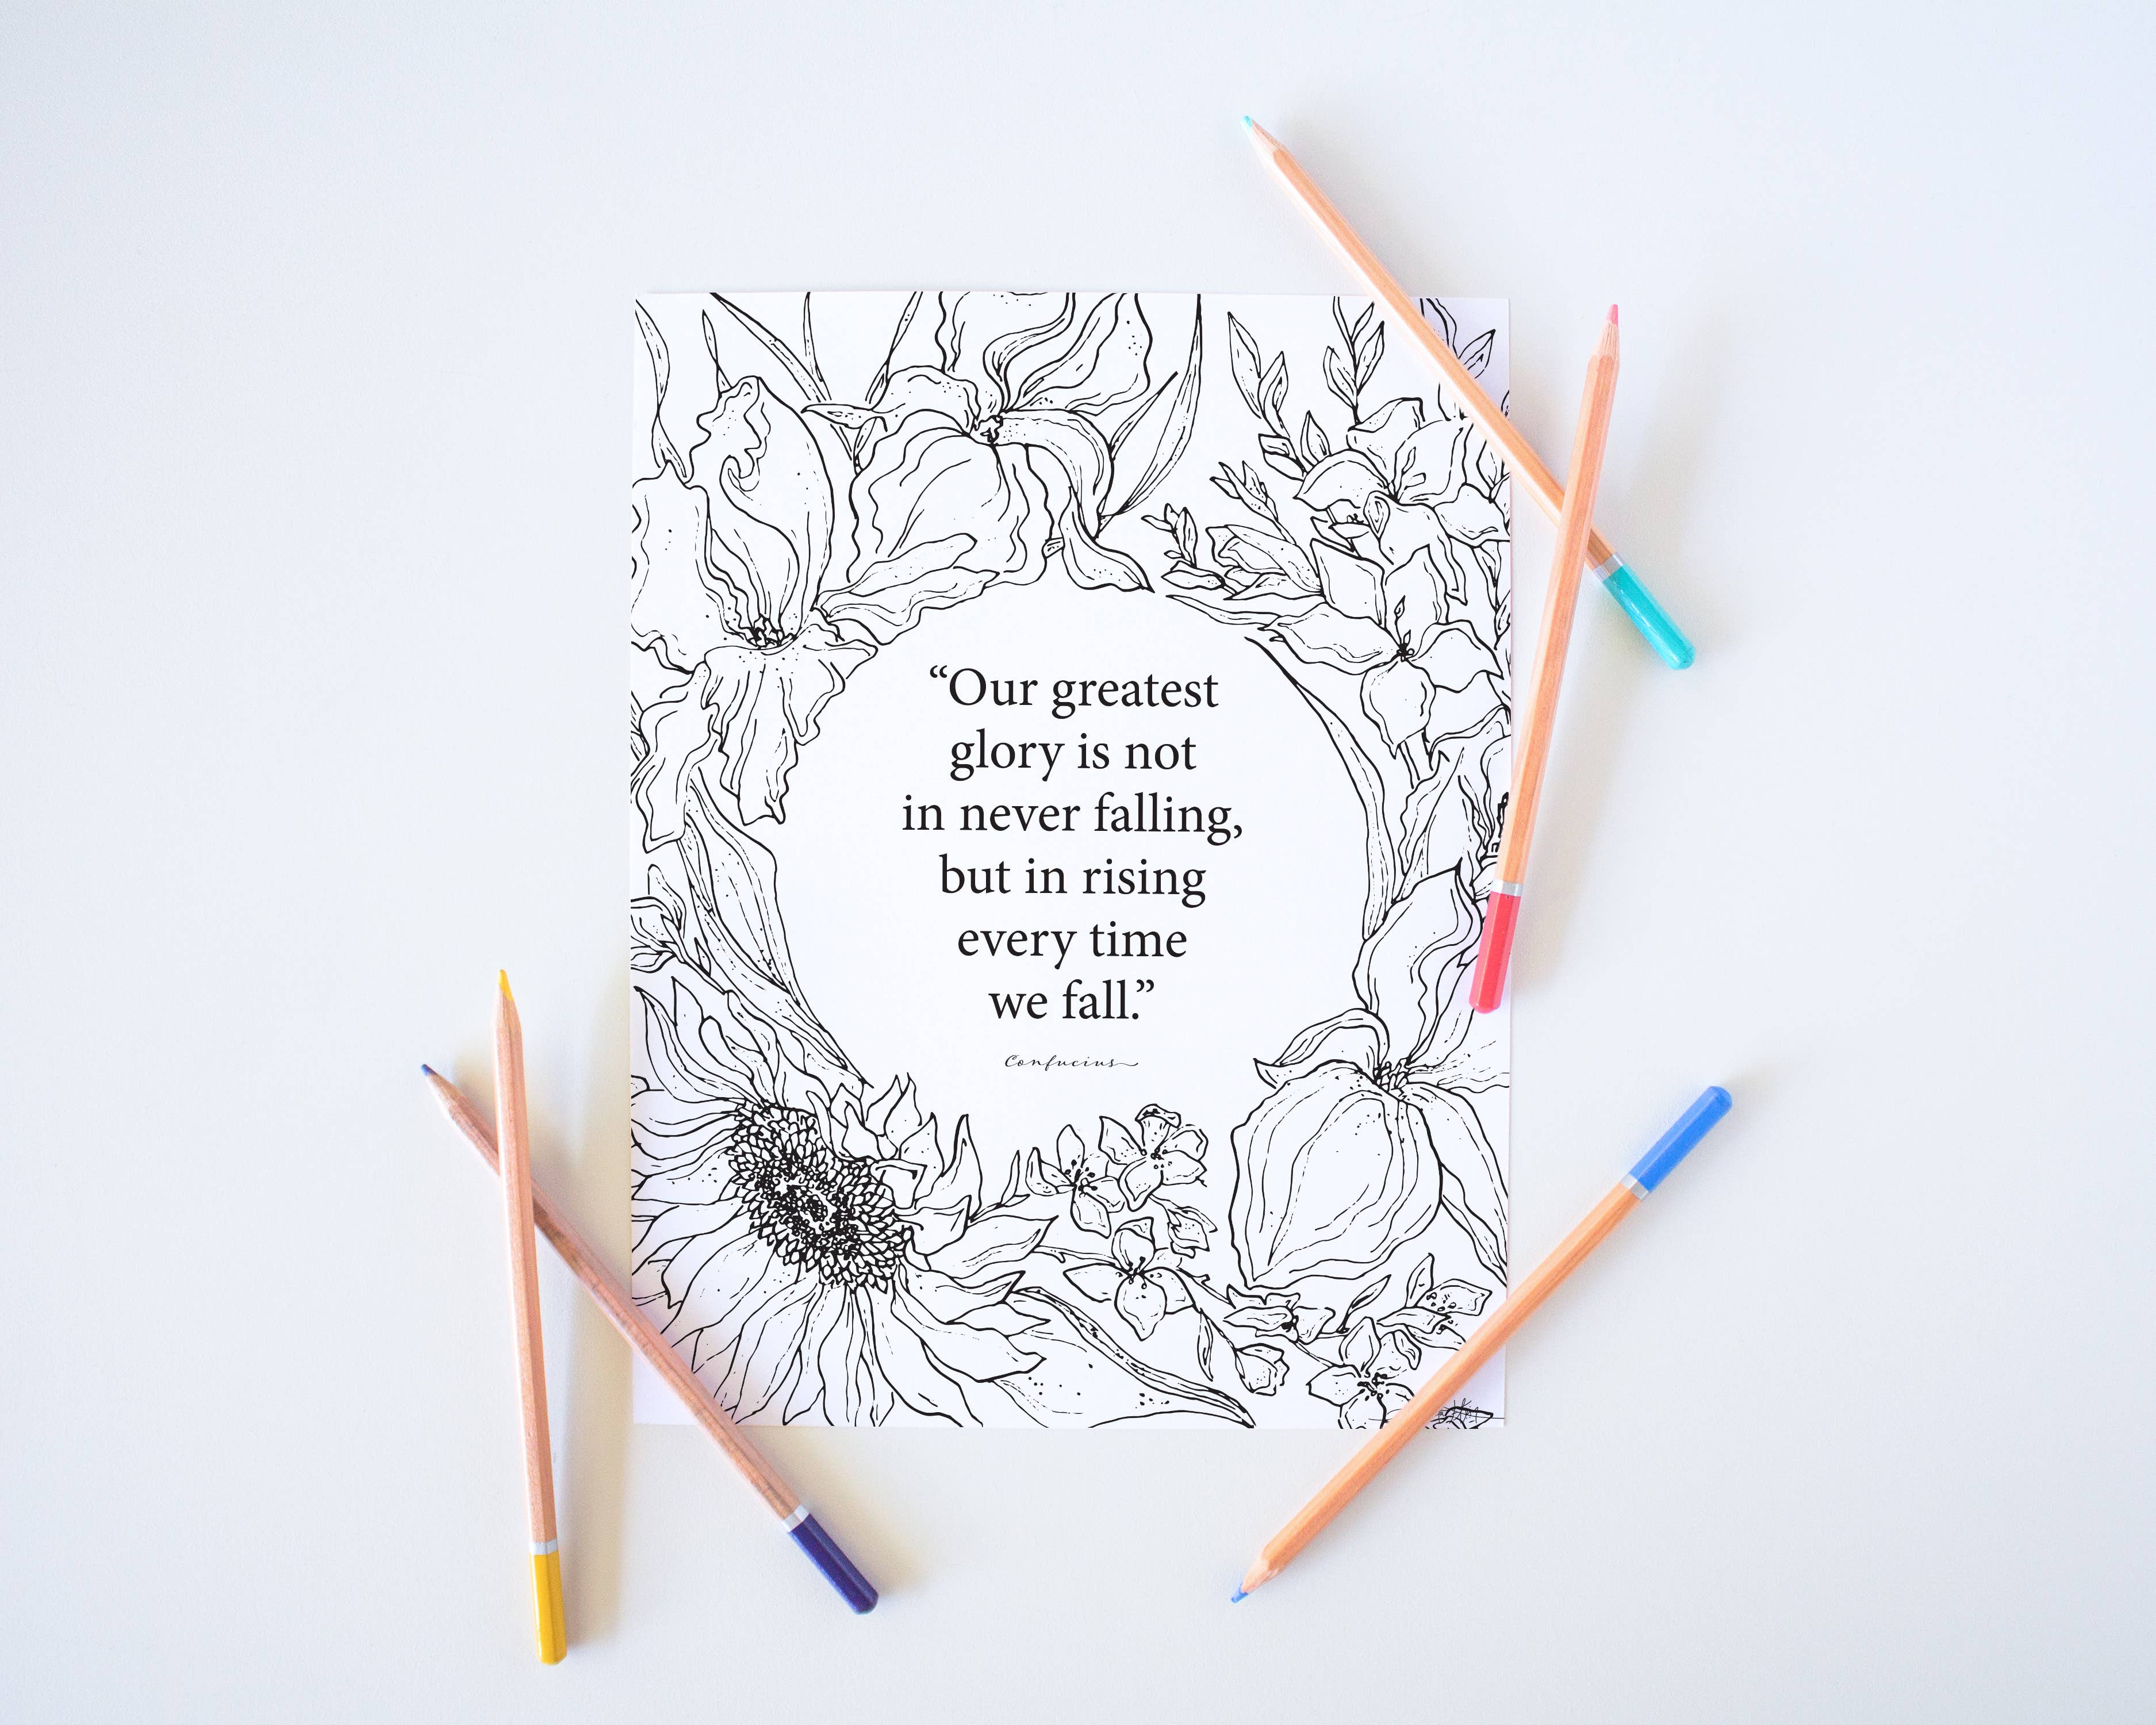 “Our greatest
glory is not
in never falling,
but in rising
every time
we fall.”
Confucius